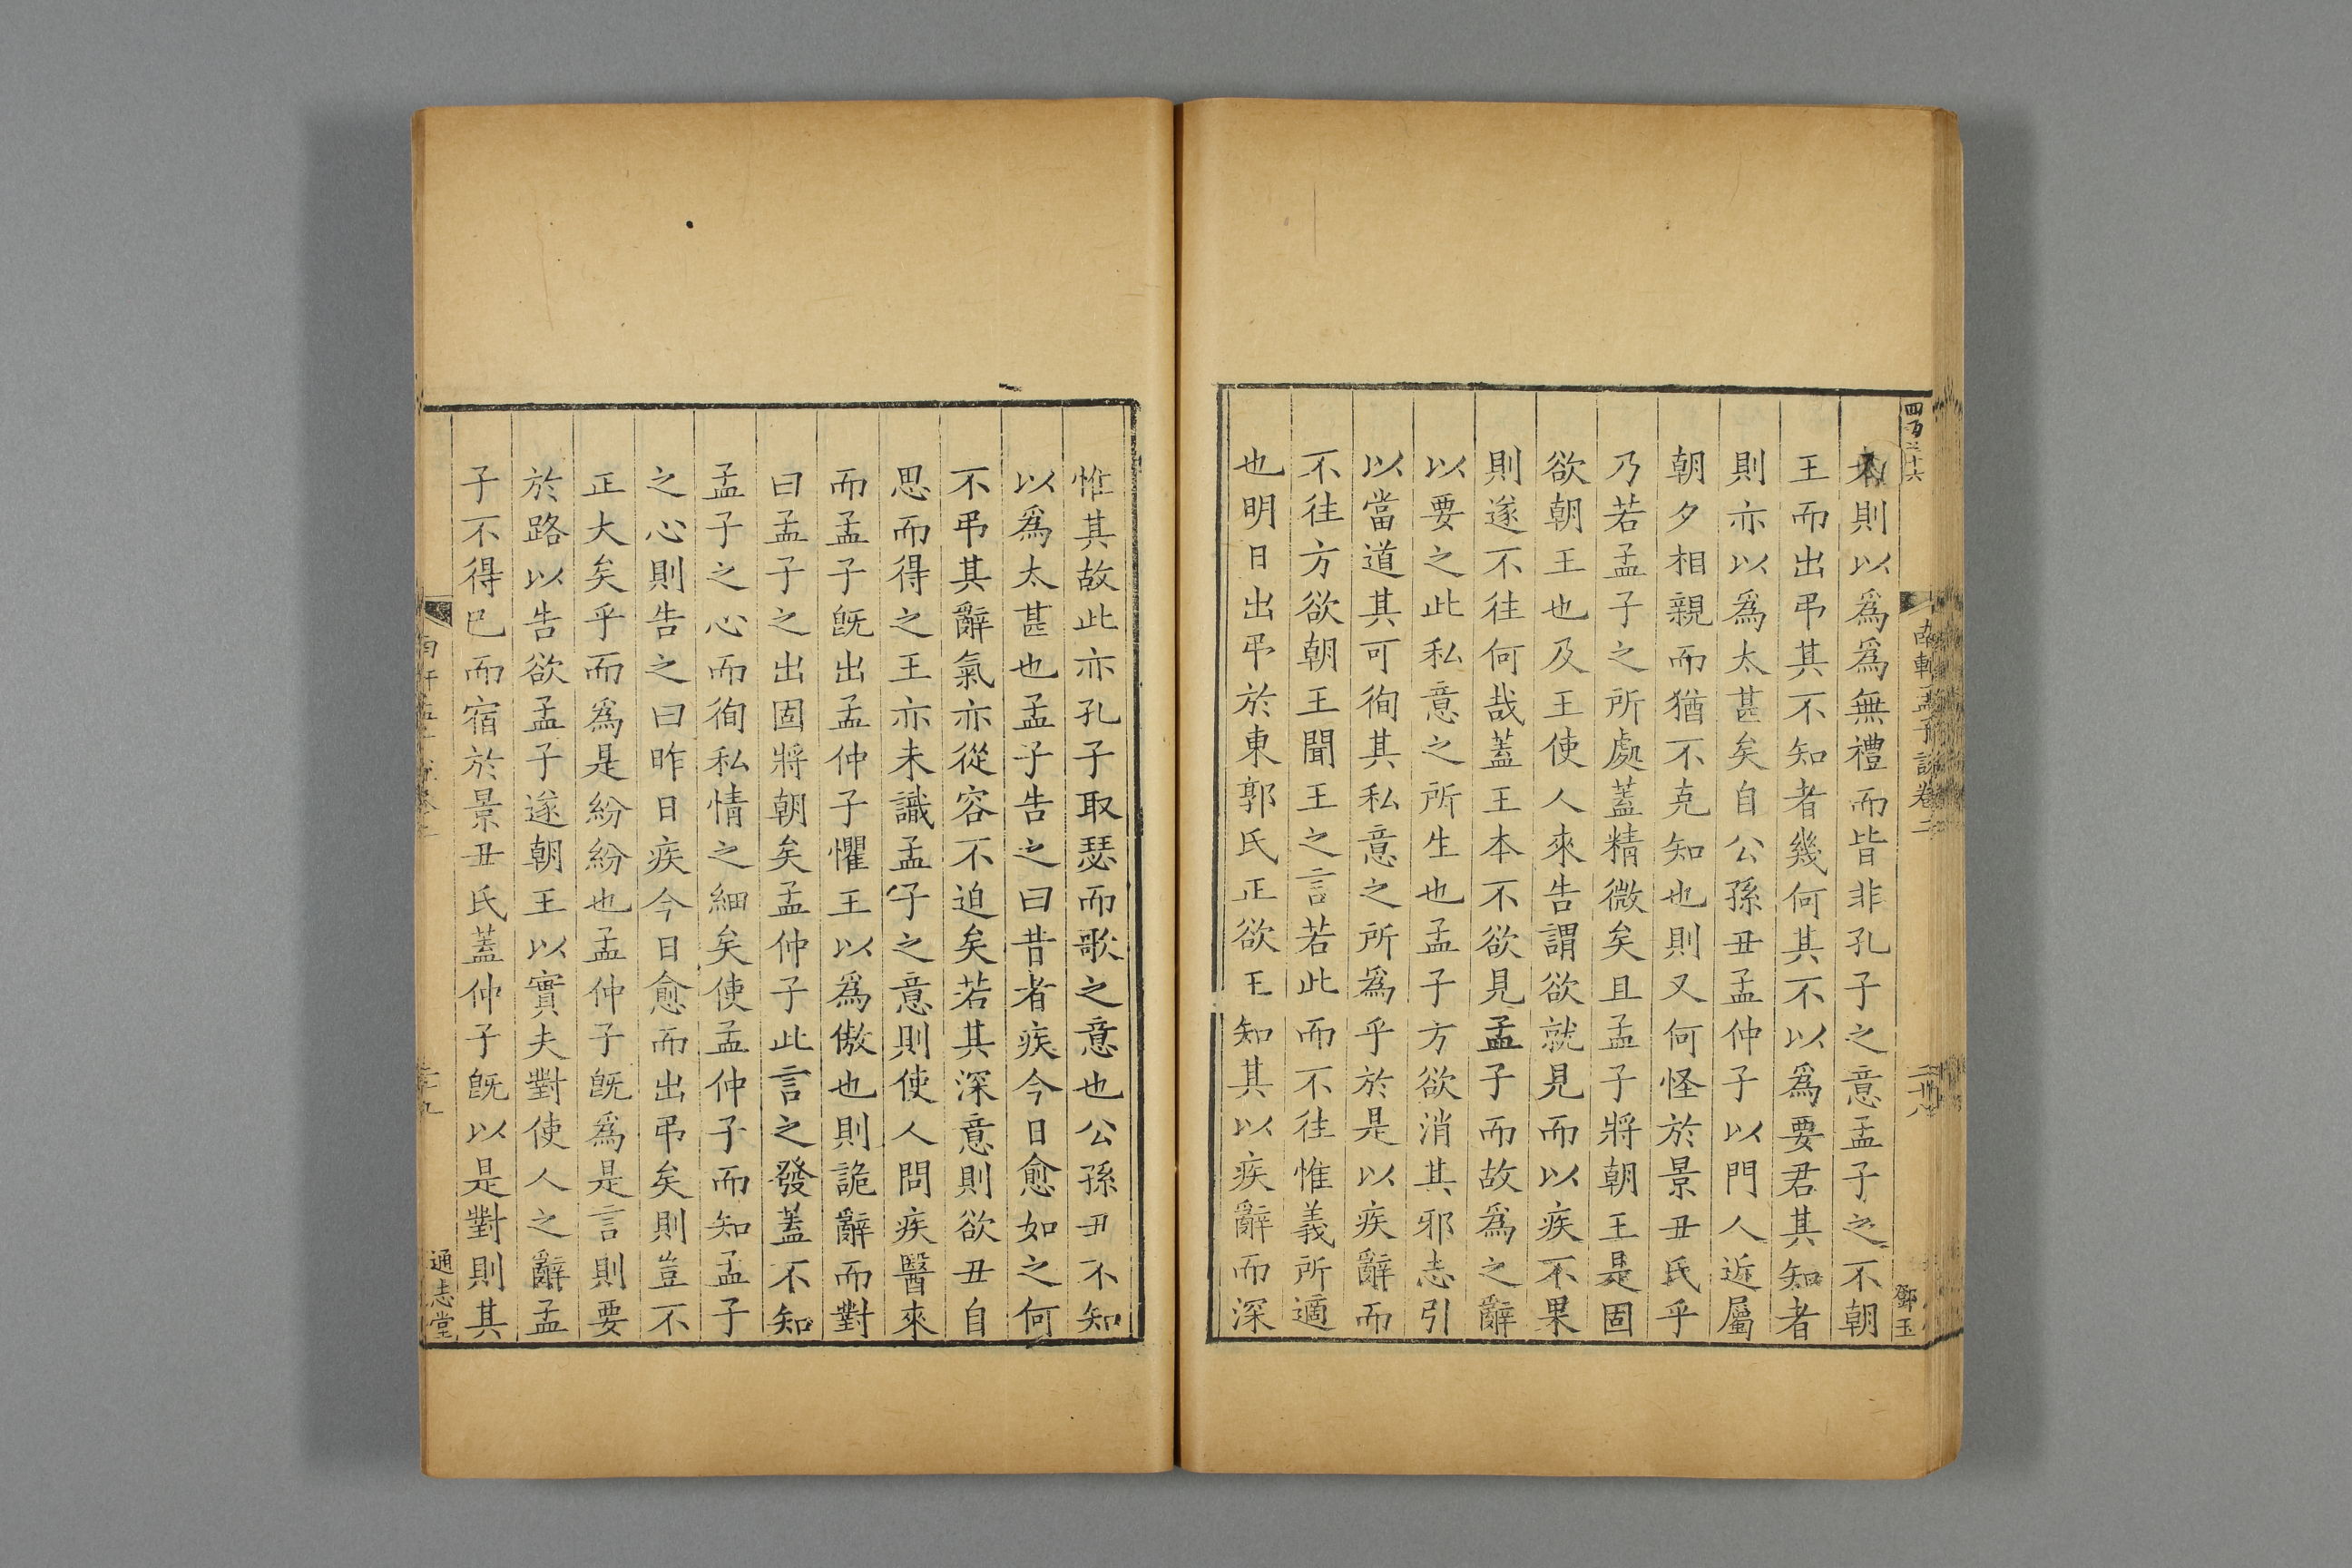 四百三十六
南軒孟子說卷二
鄧玉
則以爲爲無禮而皆非孔子之意孟子之不朝
王而出弔其不知者幾何其不以爲要君其知者
則亦以爲太甚矣自公孫丑孟仲子以門人近屬
朝夕相親而猶不克知也則又何怪於景丑氏乎
乃若孟子之所處蓋精微矣且孟子將朝王是固
欲朝王也及王使人來告謂欲就見而以疾不果
則遂不往何哉蓋王本不欲見孟子而故爲之辭
以要之此私意之所生也孟子方欲消其邪志引
以當道其可徇其私意之所爲乎於是以疾辭而
不往方欲朝王聞王之言若此而不往惟義所適
也明日出弔於東郭氏正欲王知其以疾辭而深
惟其故此亦孔子取瑟而歌之意也公孫丑不知
以爲太甚也孟子告之曰昔者疾今日愈如之何
不弔其辭氣亦從容不迫矣若其深意則欲丑自
思而得之王亦未識孟子之意則使人問疾醫來
而孟子旣出孟仲子懼王以爲傲也則詭辭而對
曰孟子之出固將朝矣孟仲子此言之發蓋不知
孟子之心而徇私情之細矣使孟仲子而知孟子
之心則告之曰昨日疾今日愈而出弔矣則豈不
正大矣乎而爲是紛紛也孟仲子旣爲是言則要
於路以告欲孟子遂朝王以實夫對使人之辭孟
子不得已而宿於景丑氏蓋仲子旣以是對則其
通志堂